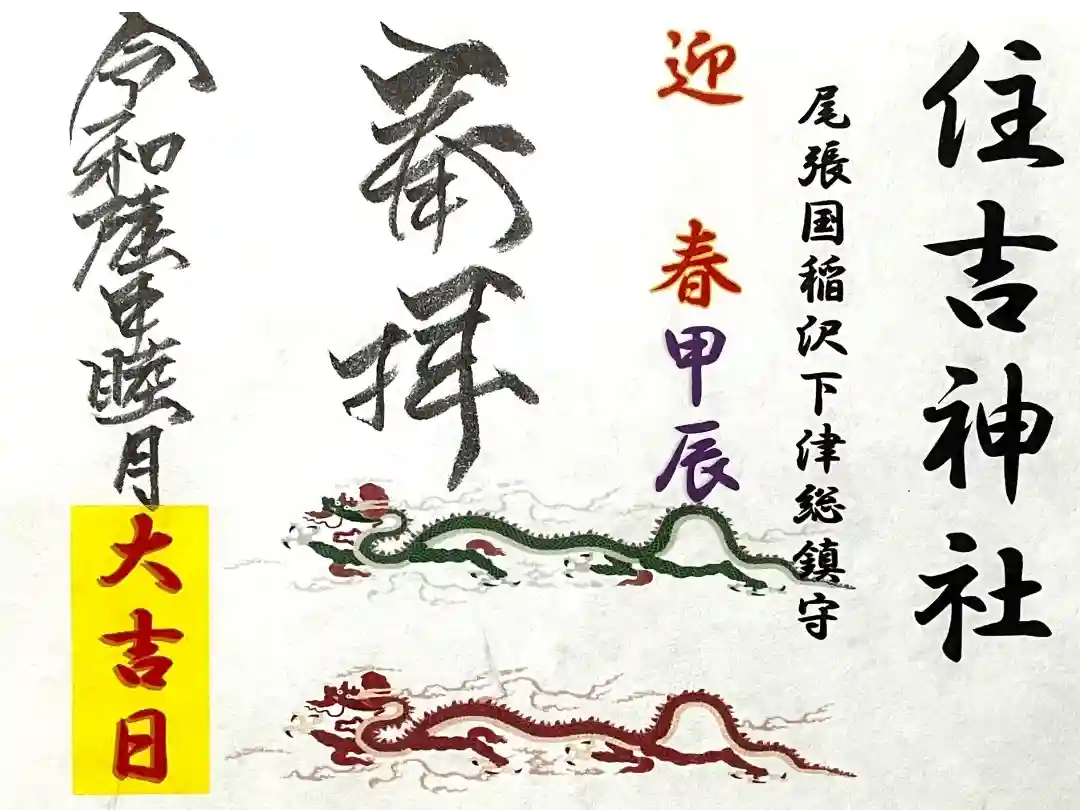 住吉神社
尾張国稲沢下津総鎮守
迎春甲辰
拝
令和 甲睦月
大吉日